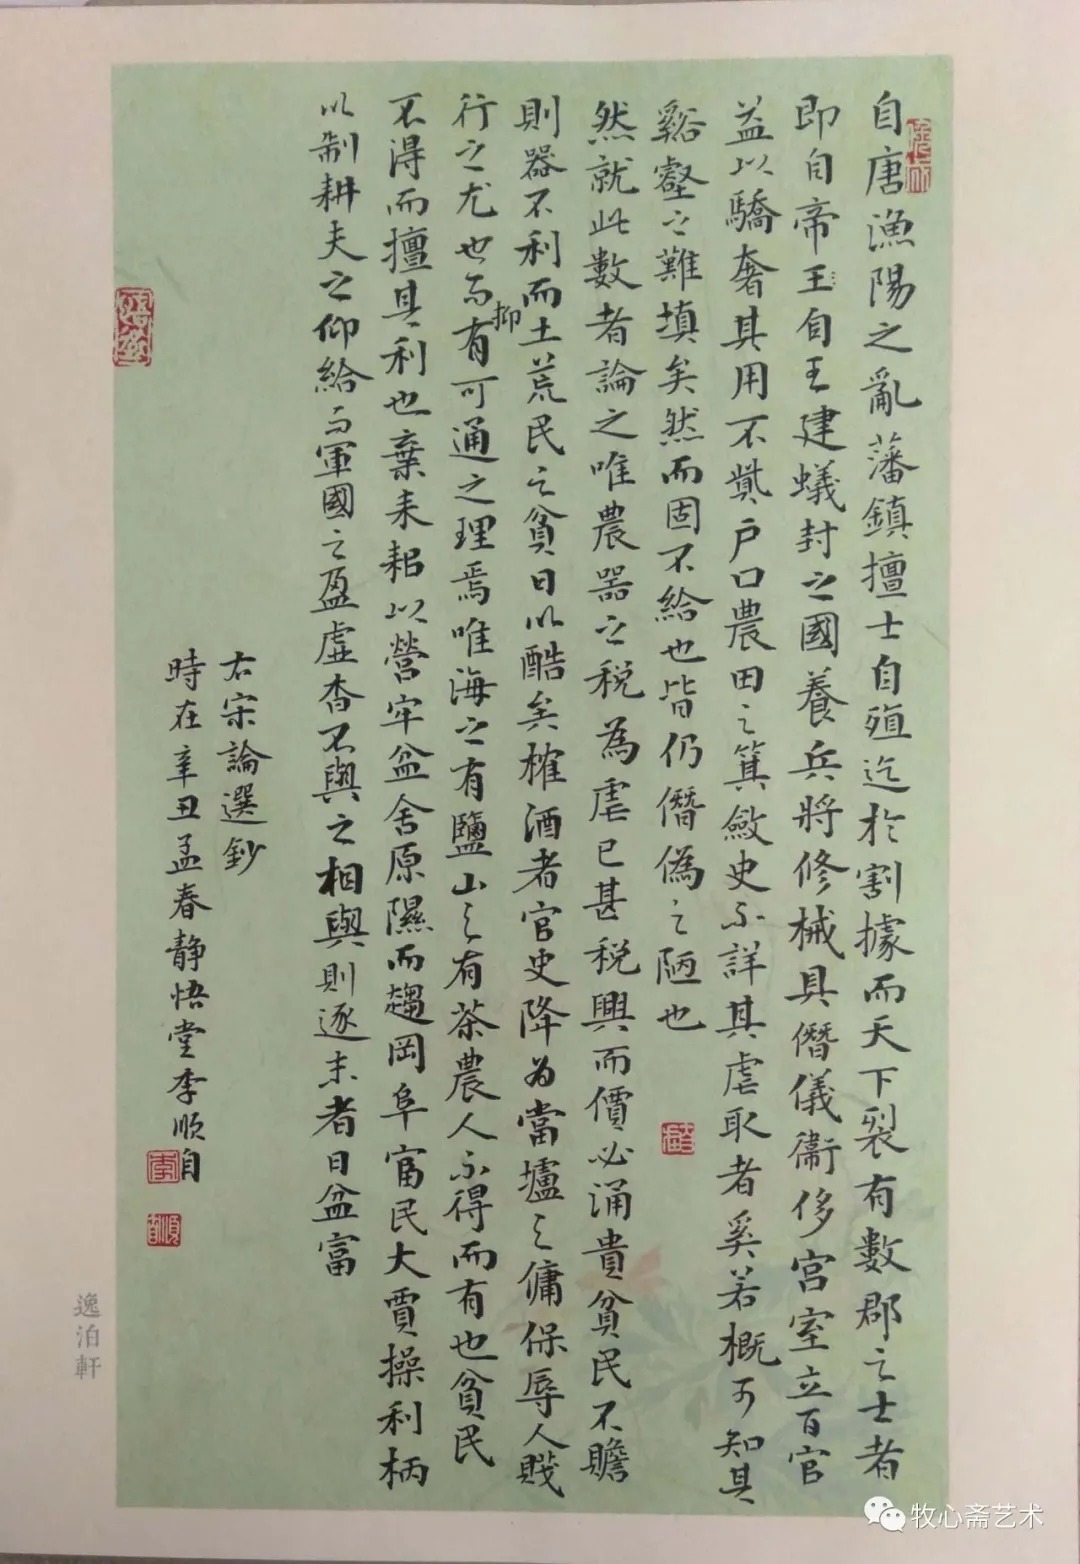 自唐漁陽之亂藩鎮擅士自殖迄於割據而天下裂有數郡之士者
即自帝王自王建蟻封之國養兵將修械具僭儀衞侈宮室立百官
益以驕奢其用不貲戶口農田之箕斂史不詳其虐取者奚若概可知其
谿壑之難填矣然而固不給也皆仍僭偽之陋也
然就此數者論之唯農器之稅為虐已甚稅興而價必涌貴貧民不贍
則器不利而土荒民之貧日以酷矣榷酒者官吏降為當壚之傭保辱人賤
行之尤也而有可通之理焉唯海之有鹽山之有茶農人不得而有也貧民
抑
不得而擅其利也棄耒耜以營牢盆舍原隰而趨岡阜富民大賈操利柄
以制耕夫之仰給而軍國之盈虛杳不與之相與則逐末者日益富
右宋論選鈔
時在辛丑孟春靜悟堂李順自
李
逸泊軒
牧心斋艺术